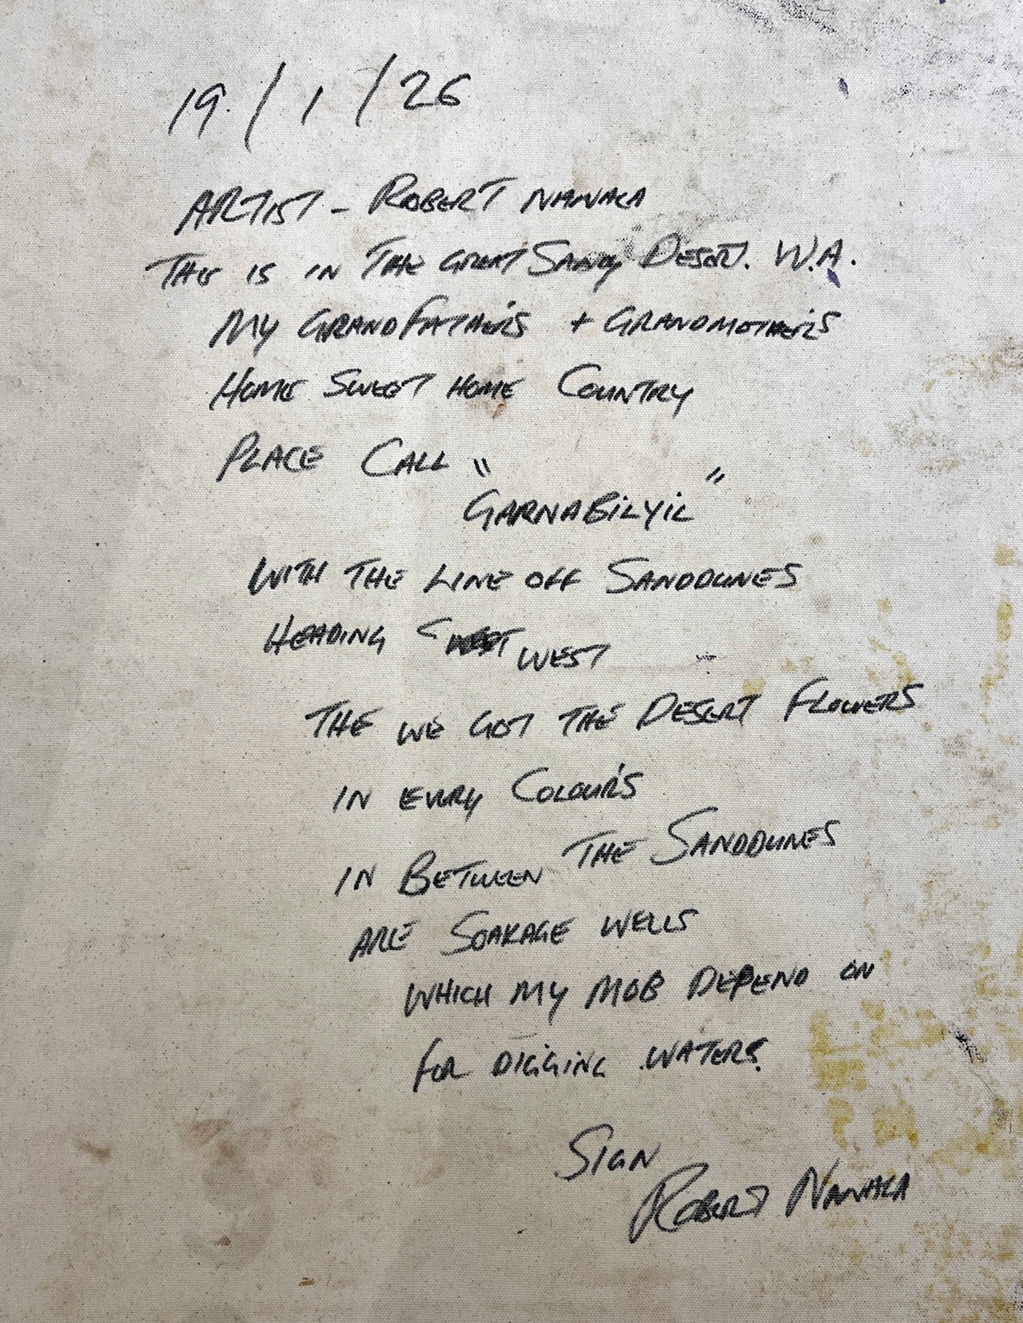 19/1/26
ARTIST - ROBERT NANALA
THIS IS IN THE GREAT SANDY DESERT. W.A.
MY GRANDFATHER'S + GRANDMOTHER'S
HOME SWEET HOME COUNTRY
PLACE CALL "
GARNABILYIL"
WITH THE LINE OFF SANDDUNES
HEADING WEST
THE WE GOT THE DESERT FLOWERS
IN EVERY COLOUR'S
IN BETWEEN THE SANDDUNES
ARE SOAKAGE WELLS
WHICH MY MOB DEPEND ON
FOR DIGGING WATERS.
SIGN
ROBERT NANALA